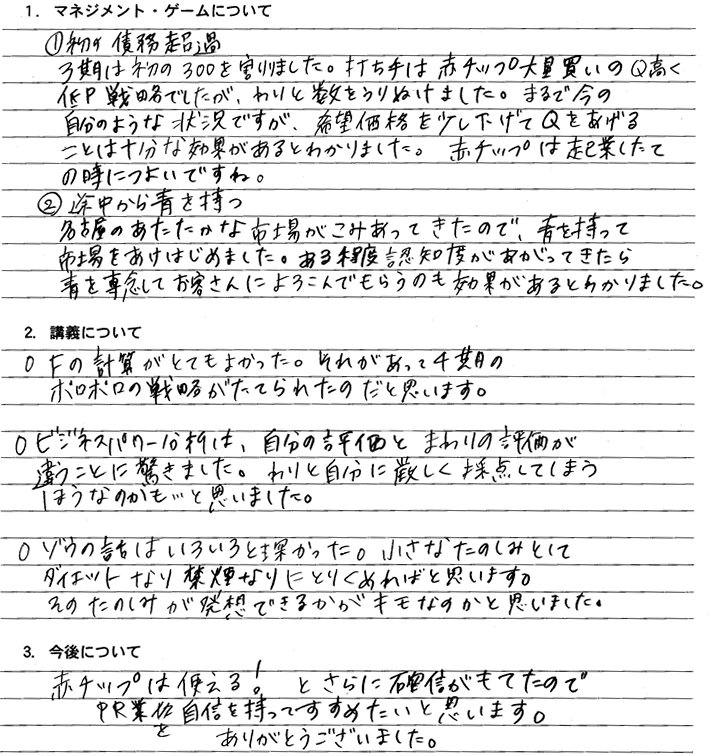 1. マネジメント・ゲームについて
①初の債務超過
3期は初の300を割りました。打ち手は赤チップ大量買いのQ高く
低P戦略でしたが、わりと数をうりぬけました。まるで今の
自分のような状況ですが、希望価格を少し下げてQをあげる
ことは十分な効果があるとわかりました。赤チップは起業したて
の時につよいですね。
②途中から青を持つ
名古屋のあたたかな市場がこみあってきたので、青を持って
市場をあけはじめました。ある程度認知度があがってきたら
青を専念してお客さんによろこんでもらうのも効果があるとわかりました。
2. 講義について
○Fの計算がとてもよかった。それがあって4期の
ボロボロの戦略がたてられたのだと思います。
○ビジネスパワー分析は、自分の評価とまわりの評価が
違うことに驚きました。わりと自分に厳しく採点してしまう
ほうなのかも…と思いました。
○ゾウの話はいろいろと深かった。小さなたのしみとして
ダイエットなり禁煙なりにとりくめればと思います。
そのたのしみが発想できるかがキモなのかと思いました。
3. 今後について
赤チップは使える！とさらに確信がもてたので
PR業務を自信を持ってすすめたいと思います。
ありがとうございました。